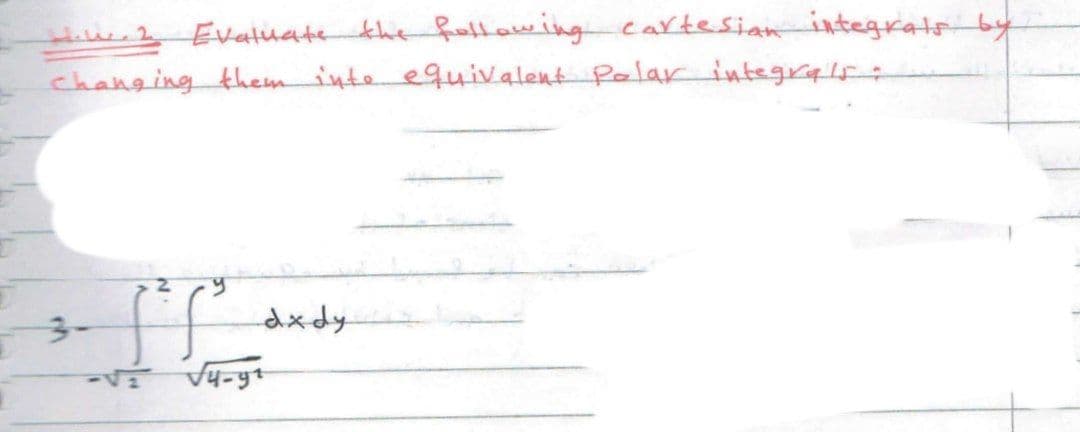 H.w.2 Evaluate the following cartesian integrals by
changing them into equivalent Polar integrals :
3- ∫_{-√2}^{2} ∫_{√4-y²}^{y} dxdy